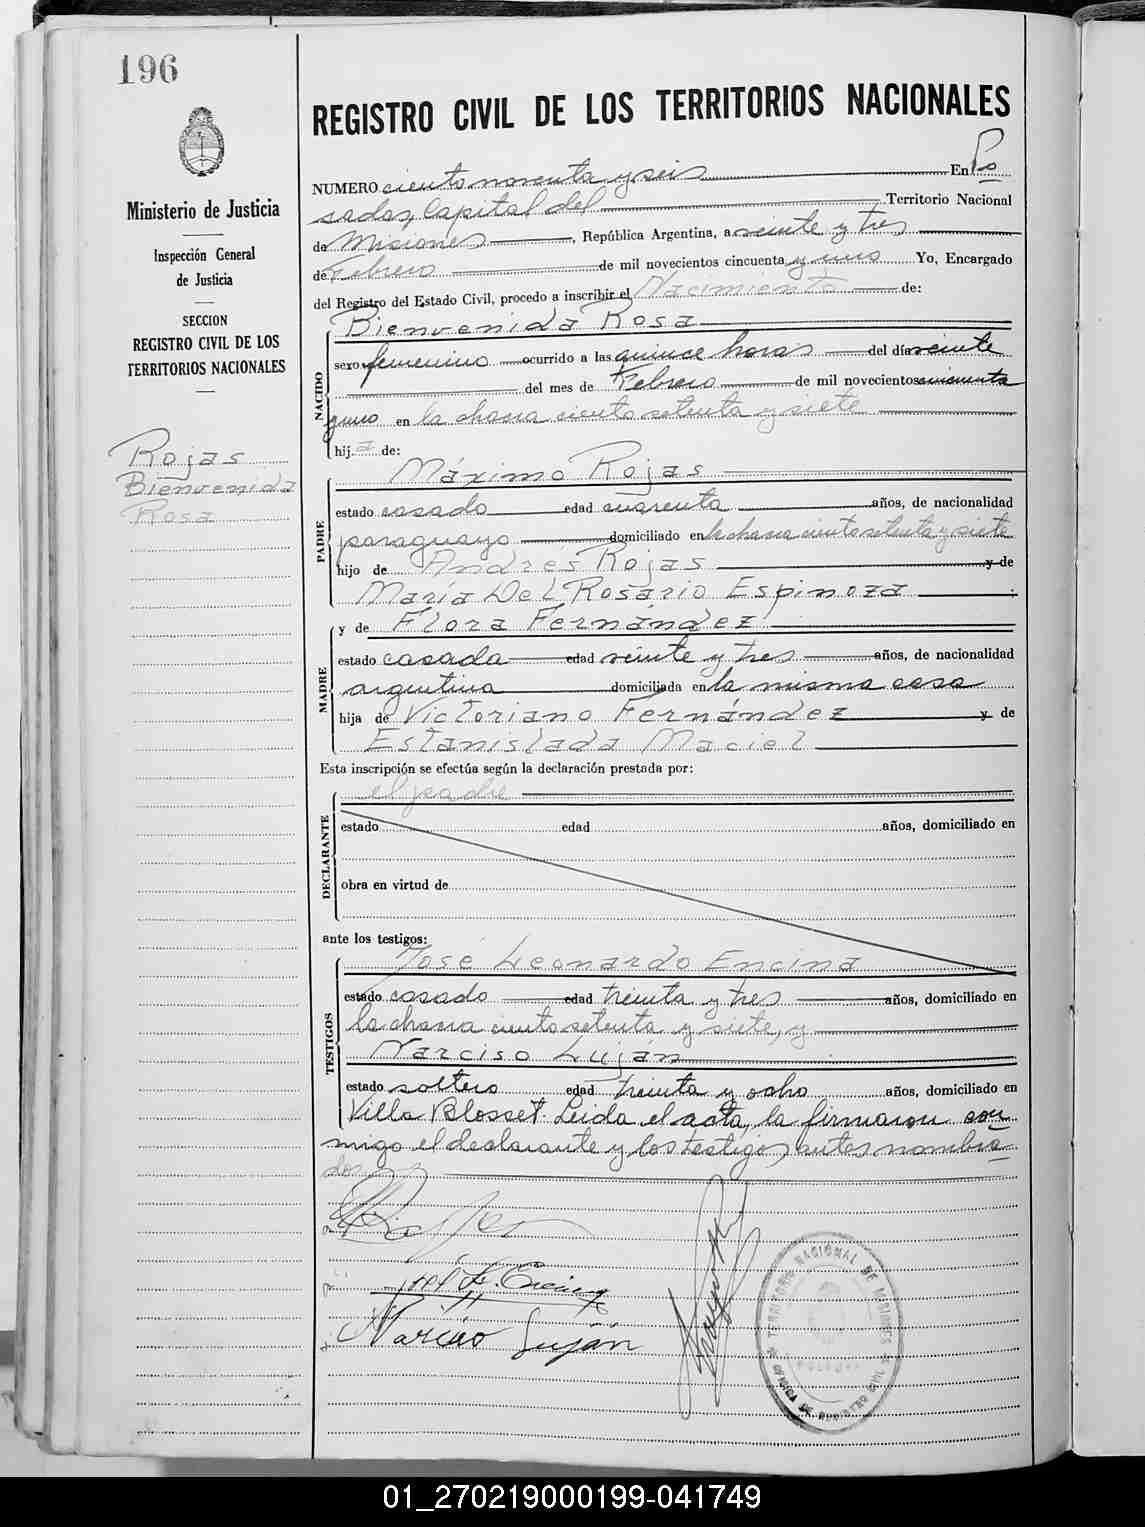 196
Ministerio de Justicia
Inspección General
de Justicia
SECCION
REGISTRO CIVIL DE LOS
TERRITORIOS NACIONALES
Rojas
Bienvenida
Rosa
REGISTRO CIVIL DE LOS TERRITORIOS NACIONALES
NUMERO ciento noventa y seis En Po
sadas, Capital del Territorio Nacional
de Misiones, República Argentina, a veinte y tres
de Febrero de mil novecientos cincuenta y uno Yo, Encargado
del Registro del Estado Civil, procedo a inscribir el Nacimiento de:
Bienvenida Rosa
NACIDO
sexo femenino ocurrido a las quince horas del día veinte
del mes de Febrero de mil novecientos cincuenta
y uno en la chacra ciento setenta y siete
hija de:
Máximo Rojas
PADRE
estado casado edad cuarenta años, de nacionalidad
paraguayo domiciliado en la chacra ciento setenta y siete
hijo de Andrés Rojas y de
María Del Rosario Espinoza
y de Flora Fernández
MADRE
estado casada edad veinte y tres años, de nacionalidad
argentina domiciliada en la misma casa
hija de Victoriano Fernández y de
Estanislada Maciel
Esta inscripción se efectúa según la declaración prestada por:
el padre
DECLARANTE
estado edad años, domiciliado en
obra en virtud de
ante los testigos:
José Leonardo Encina
TESTIGOS
estado casado edad treinta y tres años, domiciliado en
la chacra ciento setenta y siete, y
Narciso Luján
estado soltero edad treinta y ocho años, domiciliado en
Villa Blosset. Leida el acta, la firmaron con
migo el declarante y los testigos antes nombra
dos
José L. Encina
Narciso Luján
TERRITORIO NACIONAL DE MISIONES
OFICINA DE REGISTRO CIVIL
01_270219000199-041749